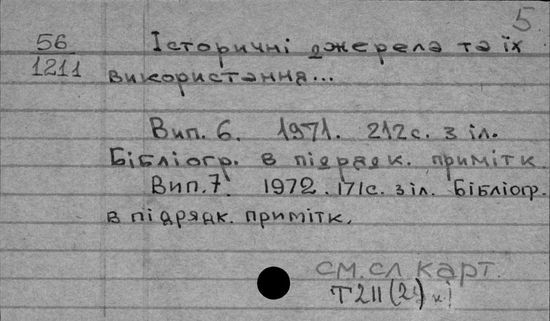 5.
56
1211
Історичні джерела та їх
використання...
Вип. 6. 1971. 212 с. з іл.
Бібліогр. в підрядк. примітк.
Вип. 7. 1972. 171 с. з іл. Бібліогр.
в підрядк. примітк.
см. сл карт.
Т211(2)